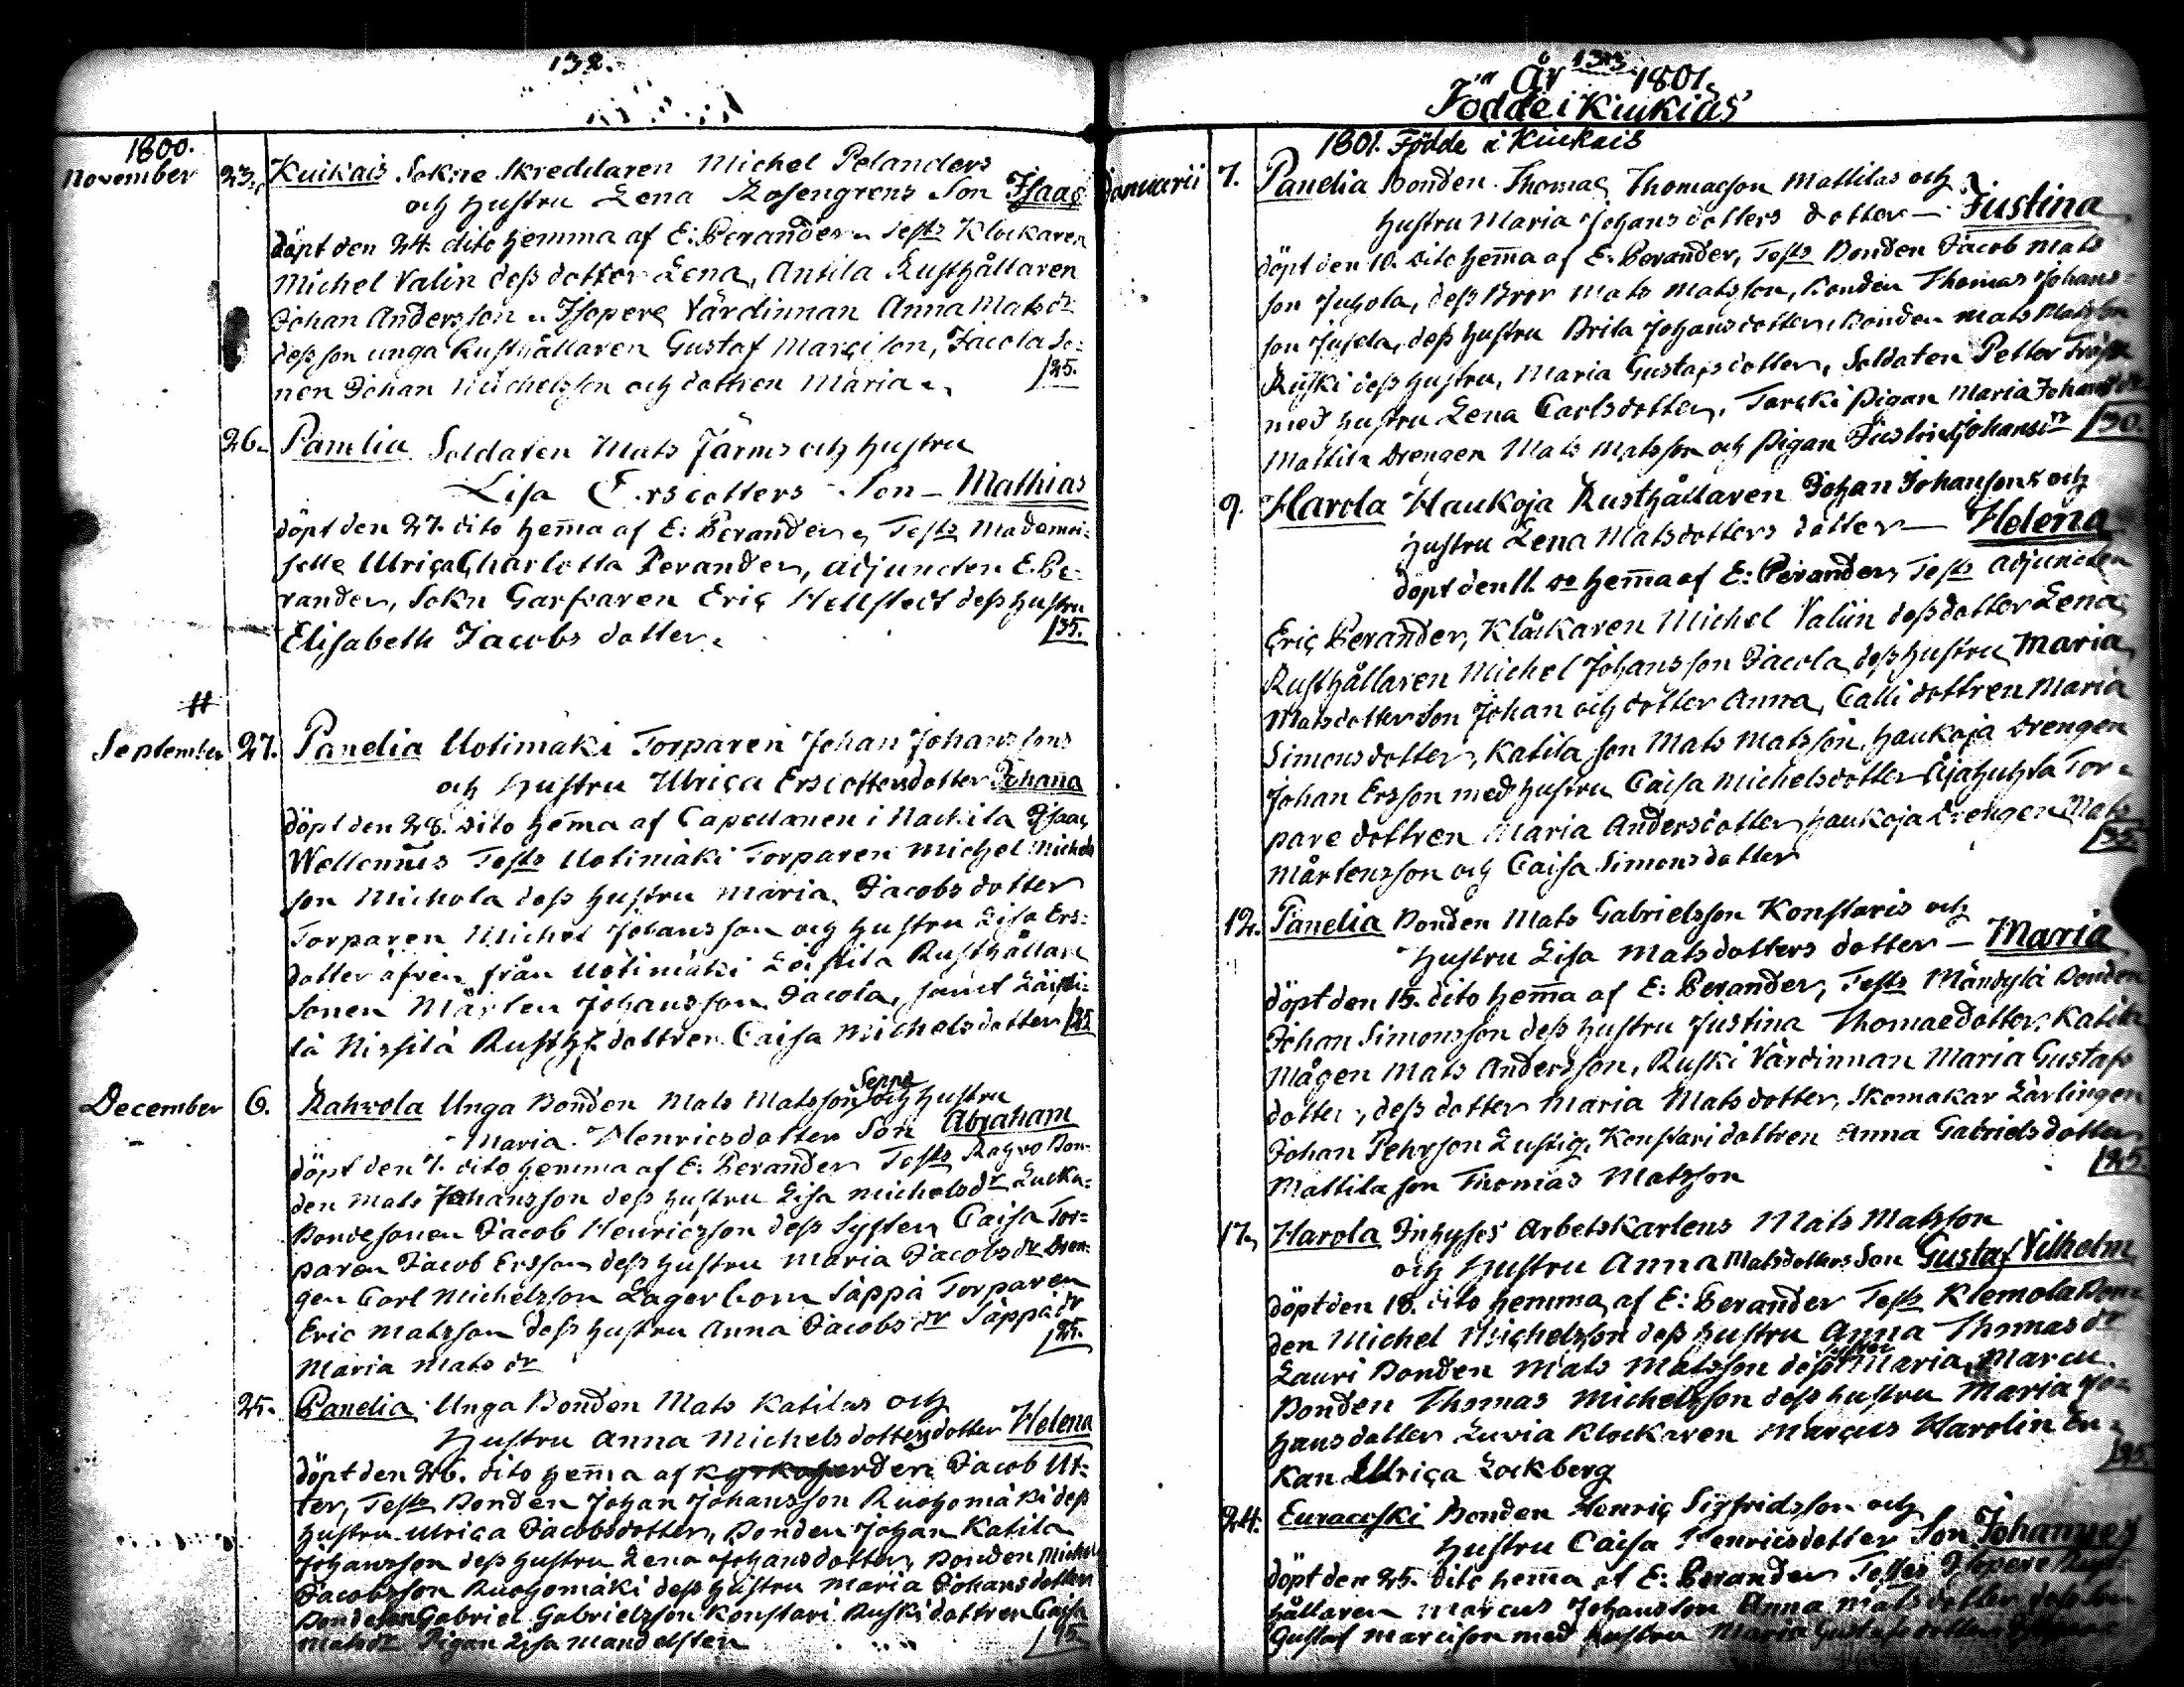 132.
1800.
November 23. Kuikais Sokne Skreddaren Michel Pelanders
och Hustru Lena Rosengrens Son Isaac
döpt den 24. dito hemma af E: Perander. Tests Klockaren
Michel Valin dess dotter Lena, Antila Rusthållaren
Johan Andersson. Isopere Värdinnan Anna Matsdr
dess son unga Rusthållaren Gustaf Marcison, Jacola So:
nen Johan Michelsson och dottren Maria.
/25.
26. Panelia Soldaten Mats Järms och Hustru
Lisa Ersdotters Son - Mathias
döpt den 27. dito hemma af E: Perander, Tests Mademoi:
selle Ulrica Charlotta Perander, adjuncten E. Pe:
rander, Sokn Garfvaren Eric Hellstedt dess Hustru
Elisabeth Jacobs dotter.
/35.
#
September 27. Panelia Uotimäki Torparen Johan Johanssons
och Hustru Ulrica Ersdotters dotter Johana
döpt den 28. dito hemma af Capellanen i Nackila Isaac
Wellenius Tests Uotimäki Torparen Michel Michels
son Michola dess Hustru Maria Jacobs dotter
Torparen Michel Johansson och Hustru Lisa Ers:
dotter äfven från Uotimäki Leistilä Rusthållare
Sonen Mårten Johansson Jacola, samt Läisti:
lä Nissilä Rusth. dottren Caisa Michelsdotter /25
December 6. Rahvola Unga Bonden Mats Matsson Seppä och Hustru
Maria Henricsdotter Son Abraham
döpt den 7. dito hemma af E: Perander Tests Rahvo Bon:
den Mats Johansson dess Hustru Lisa Michelsdr Lucka:
Bondesonen Jacob Henricsson dess Syster Caisa Tor:
paren Jacob Ersson dess Hustru Maria Jacobsdr Dren:
gen Carl Michelsson Lagerbom Säppä Torparen
Eric Matsson dess Hustru Anna Jacobs dr Säppä dr
Maria Mats dr
/25.
25. Panelia Unga Bonden Mats Katilas och
Hustru Anna Michelsdotters dotter Helena
döpt den 26. dito hemma af Jacob Ut:
ter, Tests Bonden Johan Johansson Ruohomäki dess
Hustru Ulrica Jacobsdotter, Bonden Johan Katila
Johansson dess Hustru Lena Johansdotter, Bonden Michel
Jacobsson Ruohomäki dess Hustru Maria Johansdotter
Bondeson Gabriel Gabrielsson Konstari Ruski dottren Caisa
Matsdr Pigan Lisa Mandelsten
/15
133
År 1801.
Födde i Kiukias
1801. Födde i Kiukais
Januarii 7. Panelia Bonden Thomas Thomasson Mattilas och
Hustru Maria Johansdotters dotter - Justina
döpt den 10. dito hemma af E. Perander, Tests Bonden Jacob Mats
son Juhola, dess Bror Mats Matsson, Bonden Thomas Johans:
son Jusela, dess Hustru Brita Johansdotter, Bonden Mats Matsson
Ruski dess Hustru, Maria Gustafsdotter, Soldaten Petter Frisk
med Hustru Lena Carlsdotter, Tarcki Pigan Maria Johansdr
Mattila Drengen Mats Matsson och Pigan Justina Johansdr /30.
9. Harola Haukoja Rusthållaren Johan Johanssons och
Hustru Lena Matsdotters dotter - Helena
döpt den 11. do hemma af E: Perander, Tests adjuncten
Eric Perander, Klåckaren Michel Valiin dess dotter Lena,
Rusthållaren Michel Johansson Jacola, dess Hustru Maria
Matsdotter Son Johan och dotter Anna, Calli dottren Maria
Simonsdotter, Katila son Mats Matsson, Haukoja Drengen
Johan Ersson med Hustru Caisa Michelsdotter Tor:
pare dottren Maria Andersdotter Haukoja Drengen Mats
Mårtensson och Caisa Simonsdotter
/35.
12. Panelia Bonden Mats Gabrielsson Konstaris och
Hustru Lisa Matsdotters dotter - Maria
döpt den 15. dito hemma af E: Perander, Tests Mändylä Bonden
Johan Simonsson dess Hustru Justina Thomaedotter, Katila
Mågen Mats Andersson, Ruski Värdinnan Maria Gustafs
dotter, dess dotter Maria Matsdotter, Skomakar Lärlingen
Johan Pehrsson Lustig, Konstari dottren Anna Gabrielsdotter
Mattila son Thomas Matsson
/25
17. Harola Inhyses Arbetskarlens Mats Matsson
och Hustru Anna Matsdotters Son Gustaf Vilhelm
döpt den 18. dito hemma af E: Perander Tests Klemola Bon:
den Michel Michelsson dess Hustru Anna Thomasdr
Lauri Bonden Mats Matsson dess Hustru Maria, Marcu
Bonden Thomas Michelsson dess Hustru Maria Jo:
hansdotter Luvia Klockaren Marcus Harolin En:
kan Ulrica Lockberg
/25.
24. Euracoski Bonden Henric Sigfridsson och
Hustru Caisa Henricsdotter Son Johannes
döpt den 25. dito hemma af E: Perander Testes Isopere Rust
hållaren Marcus Johansson Anna Matsdotter dess Son
Gustaf Marcison med Hustru Maria Gustafsdotter